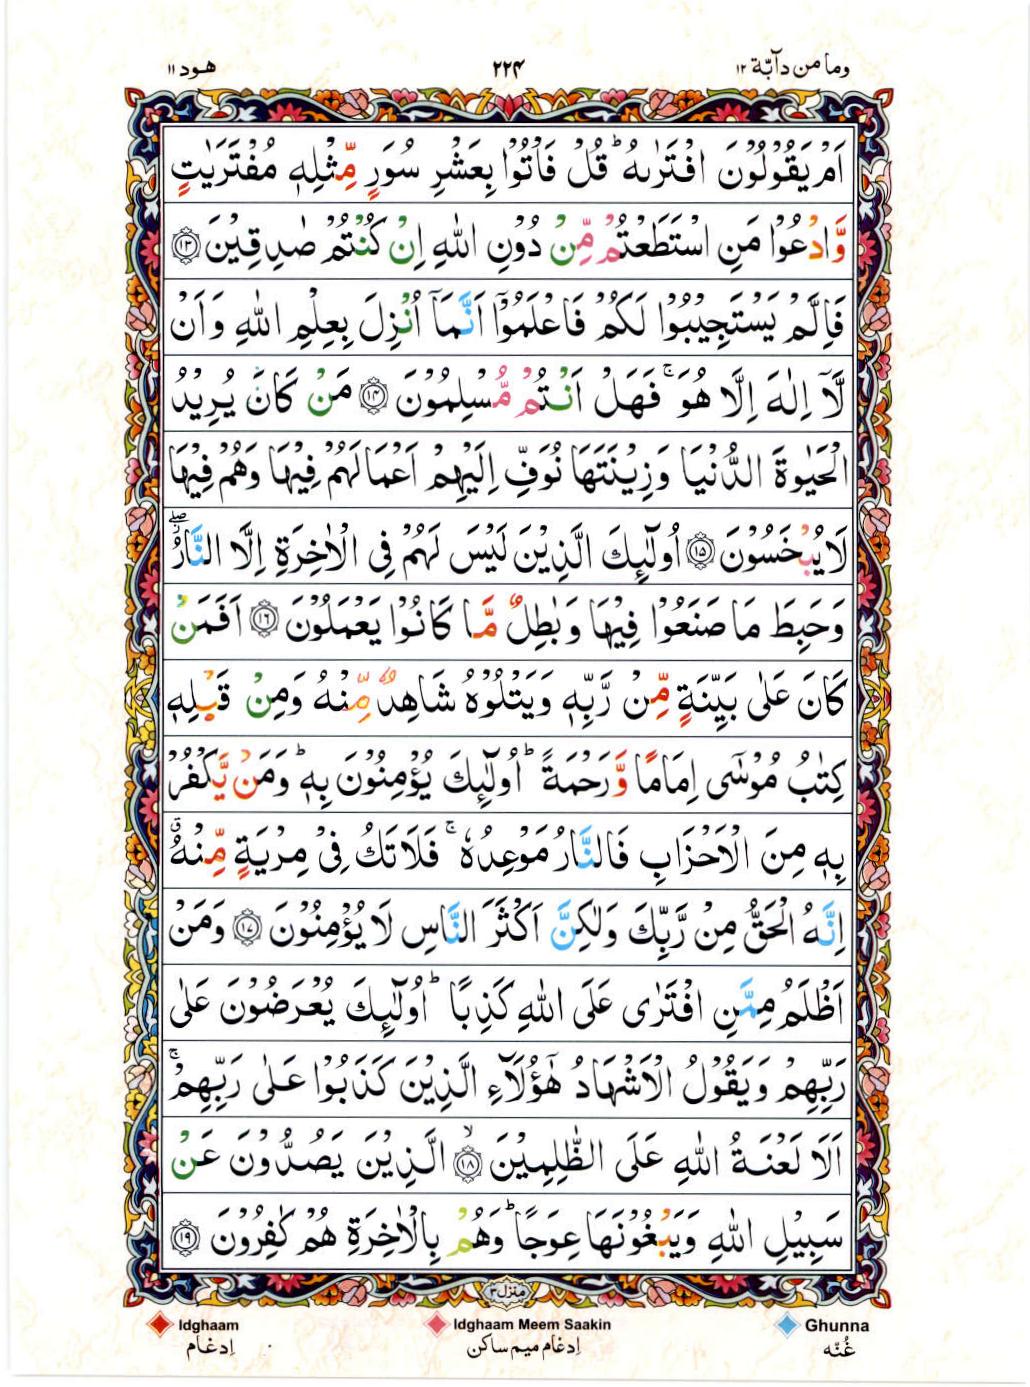 وما من دآبّة ١٢
٢٢٤
هود ١١
اَمۡ يَقُوۡلُوۡنَ افۡتَرٰىهُ‌ ؕ قُلۡ فَاۡتُوۡا بِعَشۡرِ سُوَرٍ مِّثۡلِهٖ مُفۡتَرَيٰتٍ
وَّادۡعُوۡا مَنِ اسۡتَطَعۡتُمۡ مِّنۡ دُوۡنِ اللّٰهِ اِنۡ كُنۡتُمۡ صٰدِقِيۡنَ ﴿۱۳﴾
فَاِلَّمۡ يَسۡتَجِيۡبُوۡا لَكُمۡ فَاعۡلَمُوۡۤا اَنَّمَاۤ اُنۡزِلَ بِعِلۡمِ اللّٰهِ وَاَنۡ
لَّاۤ اِلٰهَ اِلَّا هُوَ‌ ۚ فَهَلۡ اَنۡتُمۡ مُّسۡلِمُوۡنَ ﴿۱۴﴾ مَنۡ كَانَ يُرِيۡدُ
الۡحَيٰوةَ الدُّنۡيَا وَزِيۡنَتَهَا نُوَفِّ اِلَيۡهِمۡ اَعۡمَالَهُمۡ فِيۡهَا وَهُمۡ فِيۡهَا
لَا يُبۡخَسُوۡنَ ﴿۱۵﴾ اُولٰٓٮِٕكَ الَّذِيۡنَ لَيۡسَ لَهُمۡ فِى الۡاٰخِرَةِ اِلَّا النَّارُ‌ ۖ
وَحَبِطَ مَا صَنَعُوۡا فِيۡهَا وَبٰطِلٌ مَّا كَانُوۡا يَعۡمَلُوۡنَ ﴿۱۶﴾ اَفَمَنۡ
كَانَ عَلٰى بَيِّنَةٍ مِّنۡ رَّبِّهٖ وَيَتۡلُوۡهُ شَاهِدٌ مِّنۡهُ وَمِنۡ قَبۡلِهٖ
كِتٰبُ مُوۡسٰٓى اِمَامًا وَّرَحۡمَةً‌ ؕ اُولٰٓٮِٕكَ يُؤۡمِنُوۡنَ بِهٖ‌ ؕ وَمَنۡ يَّكۡفُرۡ
بِهٖ مِنَ الۡاَحۡزَابِ فَالنَّارُ مَوۡعِدُهٗ‌ ۚ فَلَا تَكُ فِىۡ مِرۡيَةٍ مِّنۡهُ‌ ق
اِنَّهُ الۡحَقُّ مِنۡ رَّبِّكَ وَلٰكِنَّ اَكۡثَرَ النَّاسِ لَا يُؤۡمِنُوۡنَ ﴿۱۷﴾ وَمَنۡ
اَظۡلَمُ مِمَّنِ افۡتَرٰى عَلَى اللّٰهِ كَذِبًا‌ ؕ اُولٰٓٮِٕكَ يُعۡرَضُوۡنَ عَلٰى
رَبِّهِمۡ وَيَقُوۡلُ الۡاَشۡهَادُ هٰٓؤُلَاۤءِ الَّذِيۡنَ كَذَبُوۡا عَلٰى رَبِّهِمۡ‌ ۚ
اَلَا لَعۡنَةُ اللّٰهِ عَلَى الظّٰلِمِيۡنَ ۙ ﴿۱۸﴾ الَّذِيۡنَ يَصُدُّوۡنَ عَنۡ
سَبِيۡلِ اللّٰهِ وَيَبۡغُوۡنَهَا عِوَجًا ؕ وَهُمۡ بِالۡاٰخِرَةِ هُمۡ كٰفِرُوۡنَ ﴿۱۹﴾
منزل ٣
Idghaam
Idghaam Meem Saakin
Ghunna
اِدغام
اِدغام میم ساکن
غُنّه